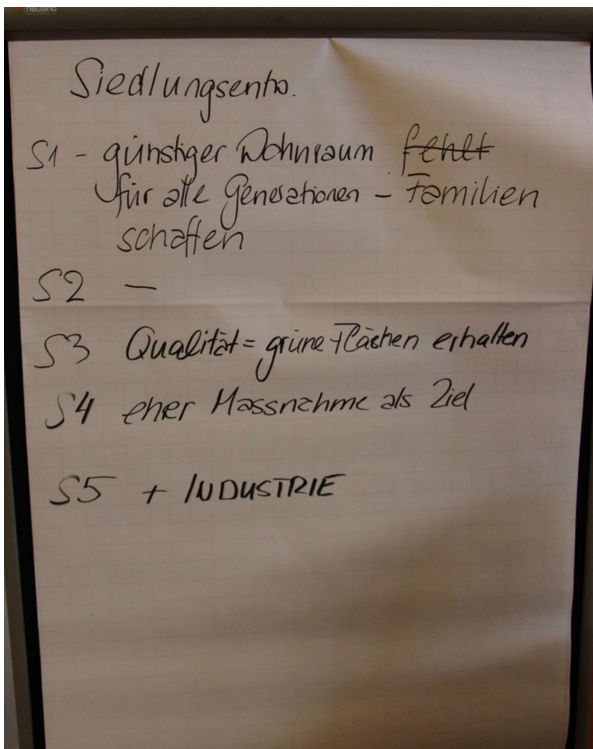 neuland
Siedlungsentw.
S1 - günstiger Wohnraum fehlt
für alle Generationen - Familien
schaffen
S2 -
S3 Qualität = grüne Flächen erhalten
S4 eher Massnahme als Ziel
S5 + INDUSTRIE